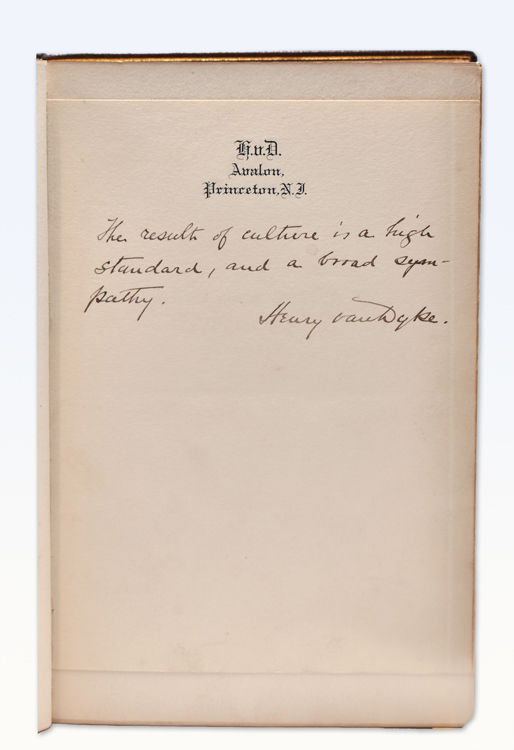 H.v.D.
Avalon,
Princeton, N.J.
The result of culture is a high
standard, and a broad sym-
pathy.
Henry van Dyke.